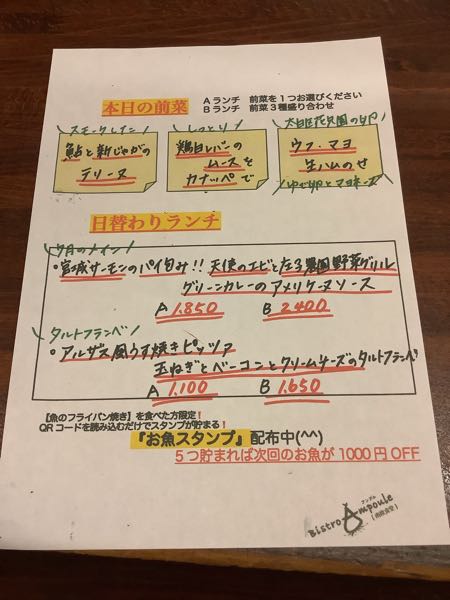 本日の前菜
Aランチ 前菜を1つお選びください
Bランチ 前菜3種盛り合わせ
鮎と新じゃがの
テリーヌ
しっとり
鶏白レバーの
ムースを
カナッペで
ウフ・マヨ
生ハムのせ
ゆで卵とマヨネーズ
日替わりランチ
今月のメイン
・宮城サーモンのパイ包み!! 天使のエビと庄子農園野菜グリル
グリーンカレーのアメリケーヌソース
A 1.850 B 2400
タルトフランベ
・アルザス風うす焼きピッツァ
玉ねぎとベーコンとクリームチーズのタルトフランベ
A 1.100 B 1.650
【魚のフライパン焼き】を食べた方限定!
QRコードを読み込むだけでスタンプが貯まる!
『お魚スタンプ』配布中(^^)
5つ貯まれば次回のお魚が1000円OFF
Bistro Ampoule